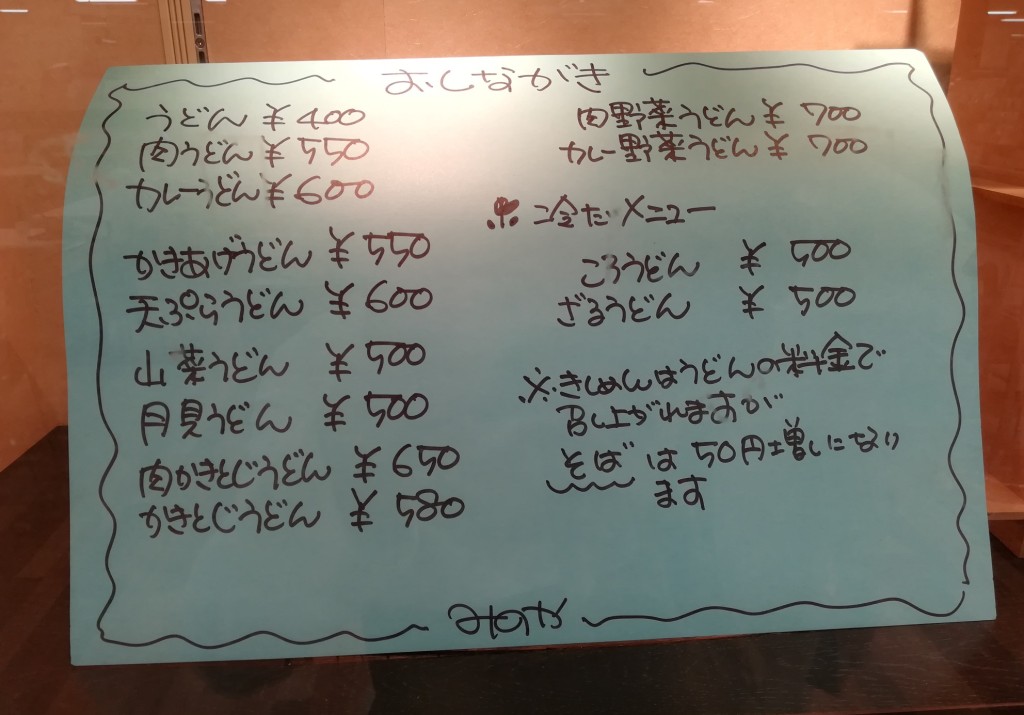 おしながき
うどん ¥400
肉うどん ¥550
カレーうどん ¥600
かきあげうどん ¥550
天ぷらうどん ¥600
山菜うどん ¥500
月見うどん ¥500
肉かきとじうどん ¥650
かきとじうどん ¥580
肉野菜うどん ¥700
カレー野菜うどん ¥700
冷たメニュー
ころうどん ¥500
ざるうどん ¥500
※きしめんはうどんの料金で
召し上がれますが
そばは50円増しになり
ます